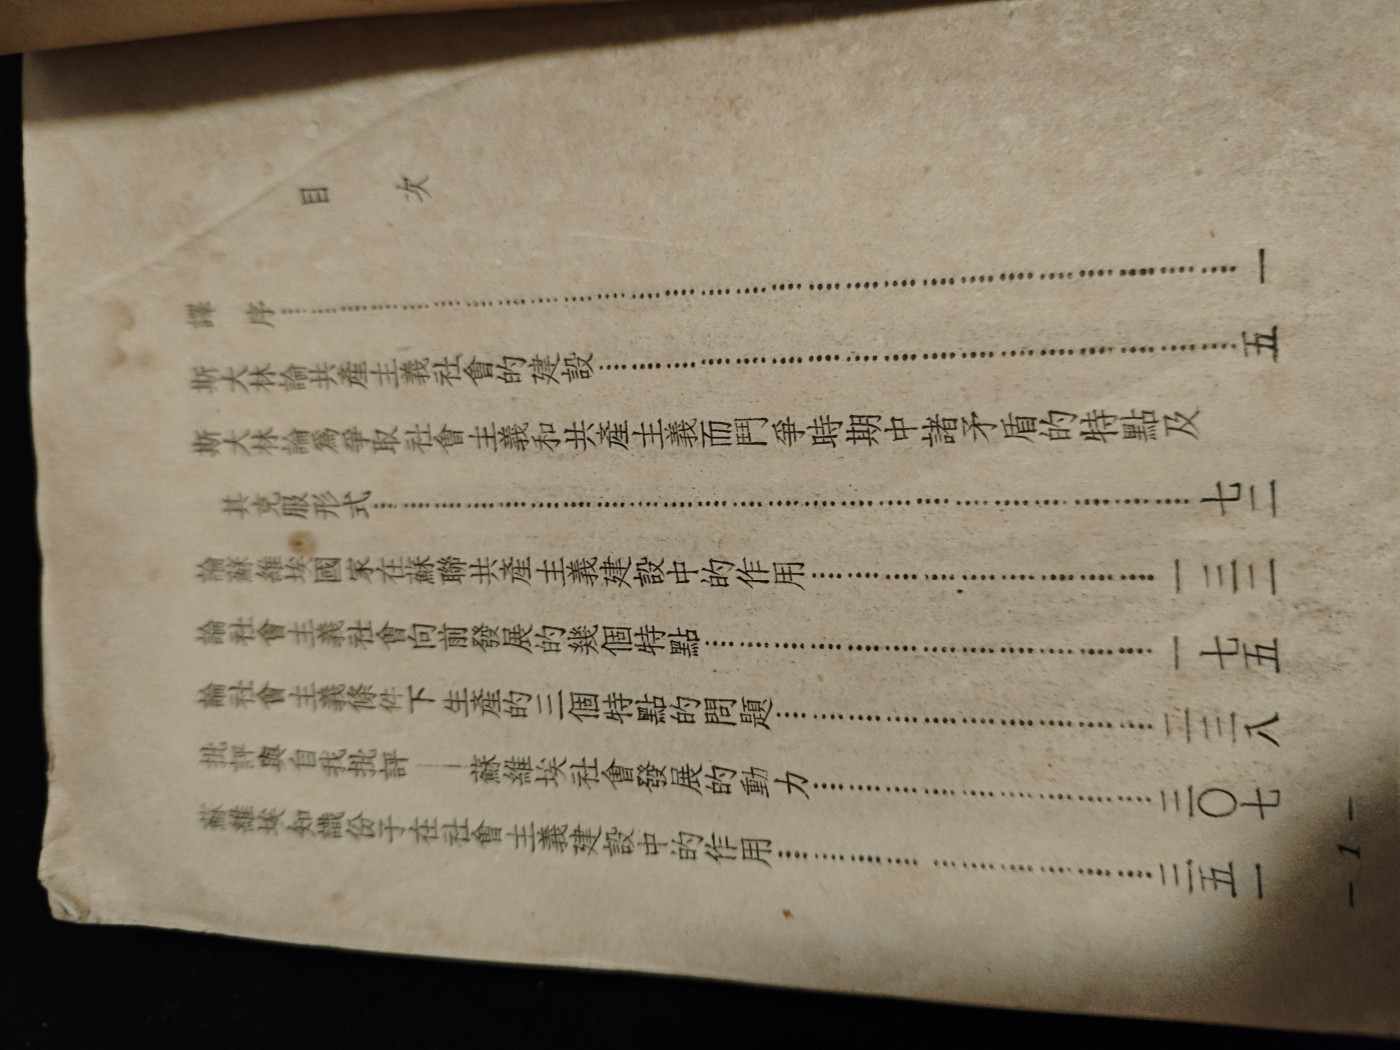 目次
譯序……一
斯大林論共產主義社會的建設……五
斯大林論爲爭取社會主義和共產主義而鬥爭時期中諸矛盾的特點及
其克服形式……七二
論蘇維埃國家在蘇聯共產主義建設中的作用……一三三
論社會主義社會向前發展的幾個特點……一七五
論社會主義條件下生產的三個特點的問題……二三八
批評與自我批評——蘇維埃社會發展的動力……三〇七
蘇維埃知識份子在社會主義建設中的作用……三五一
— 1 —